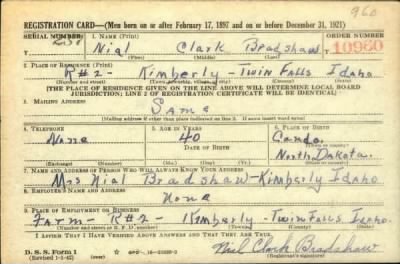 960
REGISTRATION CARD—(Men born on or after February 17, 1897 and on or before December 31, 1921)
SERIAL NUMBER 1. NAME (Print) ORDER NUMBER
Nial Clark Bradshaw 10960
(First) (Middle) (Last)
2. PLACE OF RESIDENCE (Print)
R#2 - Kimberly - Twin Falls Idaho
(Number and street) (Town, township, village, or city) (County) (State)
[THE PLACE OF RESIDENCE GIVEN ON THE LINE ABOVE WILL DETERMINE LOCAL BOARD
JURISDICTION; LINE 2 OF REGISTRATION CERTIFICATE WILL BE IDENTICAL]
3. MAILING ADDRESS
Same
[Mailing address if other than place indicated on line 2. If same insert word same]
4. TELEPHONE 5. AGE IN YEARS 6. PLACE OF BIRTH
None 40 Cando
DATE OF BIRTH (Town or county)
North Dakota
(Exchange) (Number) (Mo.) (Day) (Yr.) (State or country)
7. NAME AND ADDRESS OF PERSON WHO WILL ALWAYS KNOW YOUR ADDRESS
Mrs Nial Bradshaw-Kimberly Idaho
8. EMPLOYER'S NAME AND ADDRESS
None
9. PLACE OF EMPLOYMENT OR BUSINESS
Farm - R#2 - Kimberly - Twin Falls Idaho
(Number and street or R. F. D. number) (Town) (County) (State)
I AFFIRM THAT I HAVE VERIFIED ABOVE ANSWERS AND THAT THEY ARE TRUE.
D. S. S. Form 1 Nial Clark Bradshaw
(Revised 1-1-42) (Registrant's signature)